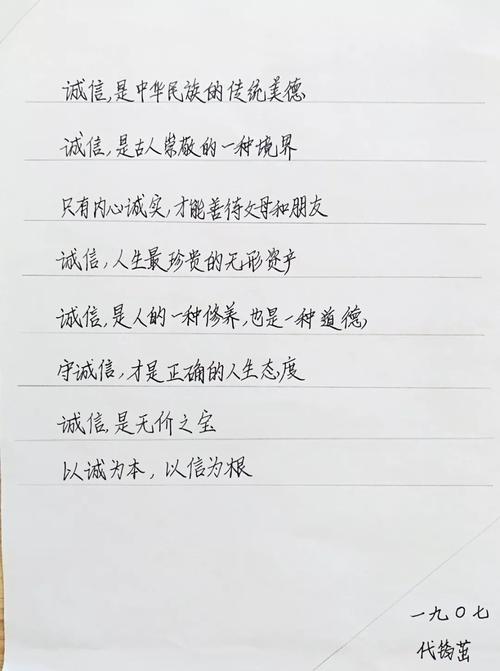 诚信,是中华民族的传统美德
诚信,是古人崇敬的一种境界
只有内心诚实,才能善待父母和朋友
诚信,人生最珍贵的无形资产
诚信,是人的一种修养,也是一种道德,
守诚信,才是正确的人生态度
诚信,是无价之宝
以诚为本,以信为根
一九〇七
代 茧